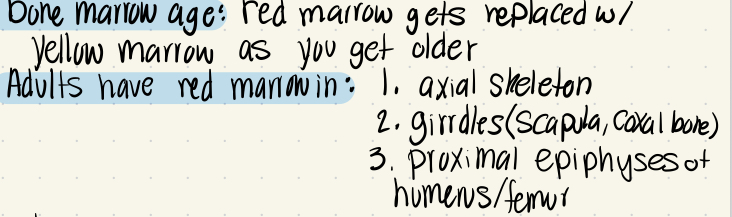 Bone marrow age: red marrow gets replaced w/
yellow marrow as you get older
Adults have red marrow in: 1. axial skeleton
2. girrdles (scapula, coxal bone)
3. proximal epiphyses of
humerus/femur